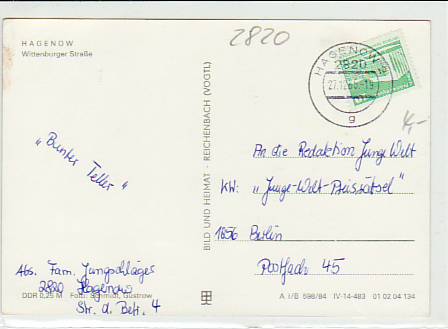 2820
HAGENOW
Wittenburger Straße
HAGENOW
2820
g
"Bunter
Teller"
BILD UND HEIMAT · REICHENBACH (VOGTL)
An die Redaktion Junge Welt
KW: „Junge-Welt-Rausätsel"
1056 Berlin
Postfach 45
Abs. Fam. Jungschläger
2820 Hagenow
Str. d. Betr. 4
DDR 0,25 M Foto: Schmidt, Güstrow
A I/B 598/84 IV-14-483 01 02 04 134